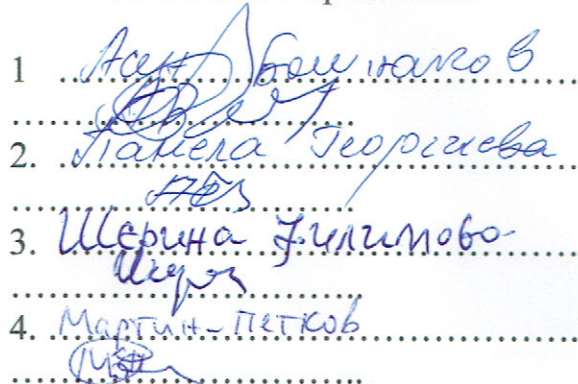 1 Асен Бошнаков
2. Памела Георгиева
3. Шерина Филипова
4. Мартин-Петков